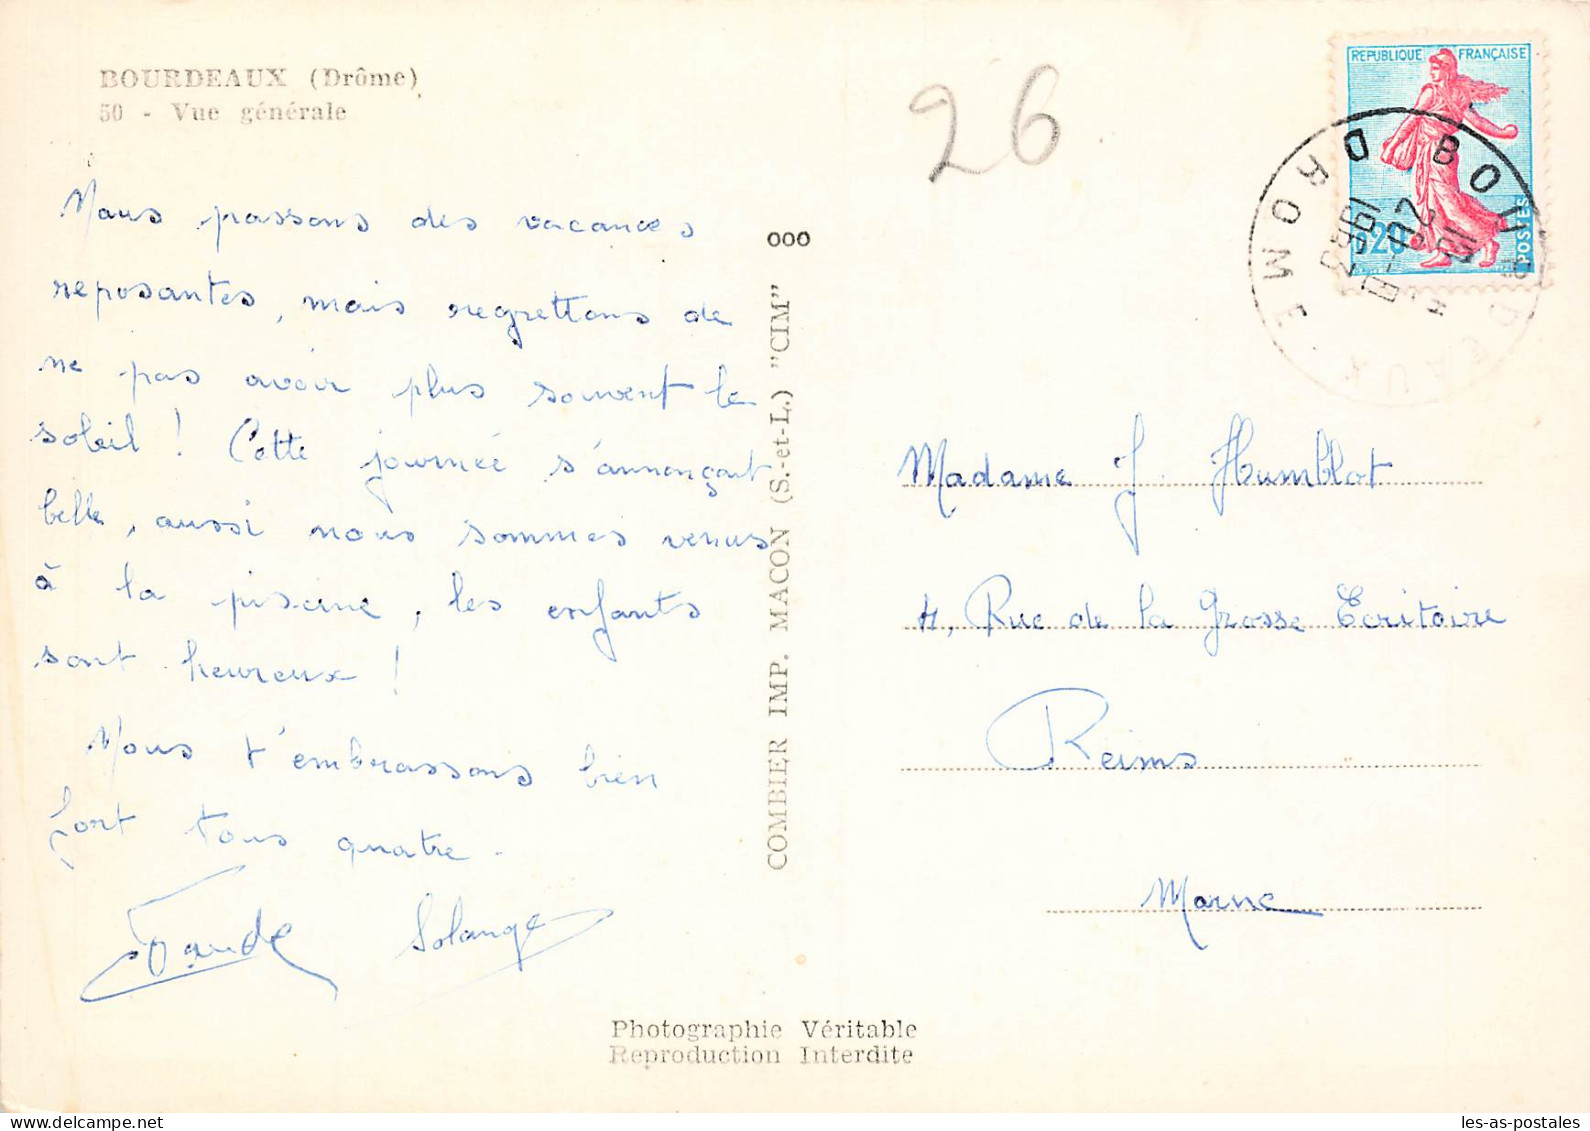 BOURDEAUX (Drôme)
50 - Vue générale
Nous passons des vacances
reposantes, mais regrettons de
ne pas avoir plus souvent le
soleil ! Cette journée s'annonçait
belle, aussi nous sommes venus
à la piscine, les enfants
sont heureux !
Nous t'embrassons bien
fort tous quatre.
Solange
26
REPUBLIQUE FRANÇAISE
0,20
POSTES
BOURDEAUX
DROME
000
COMBIER IMP. MACON (S.-et-L.) "CIM"
Madame J. Humblot
4, Rue de la Grosse Ecritoire
Reims
Marne
Photographie Véritable
Reproduction Interdite
les-as-postales / delcampe.net